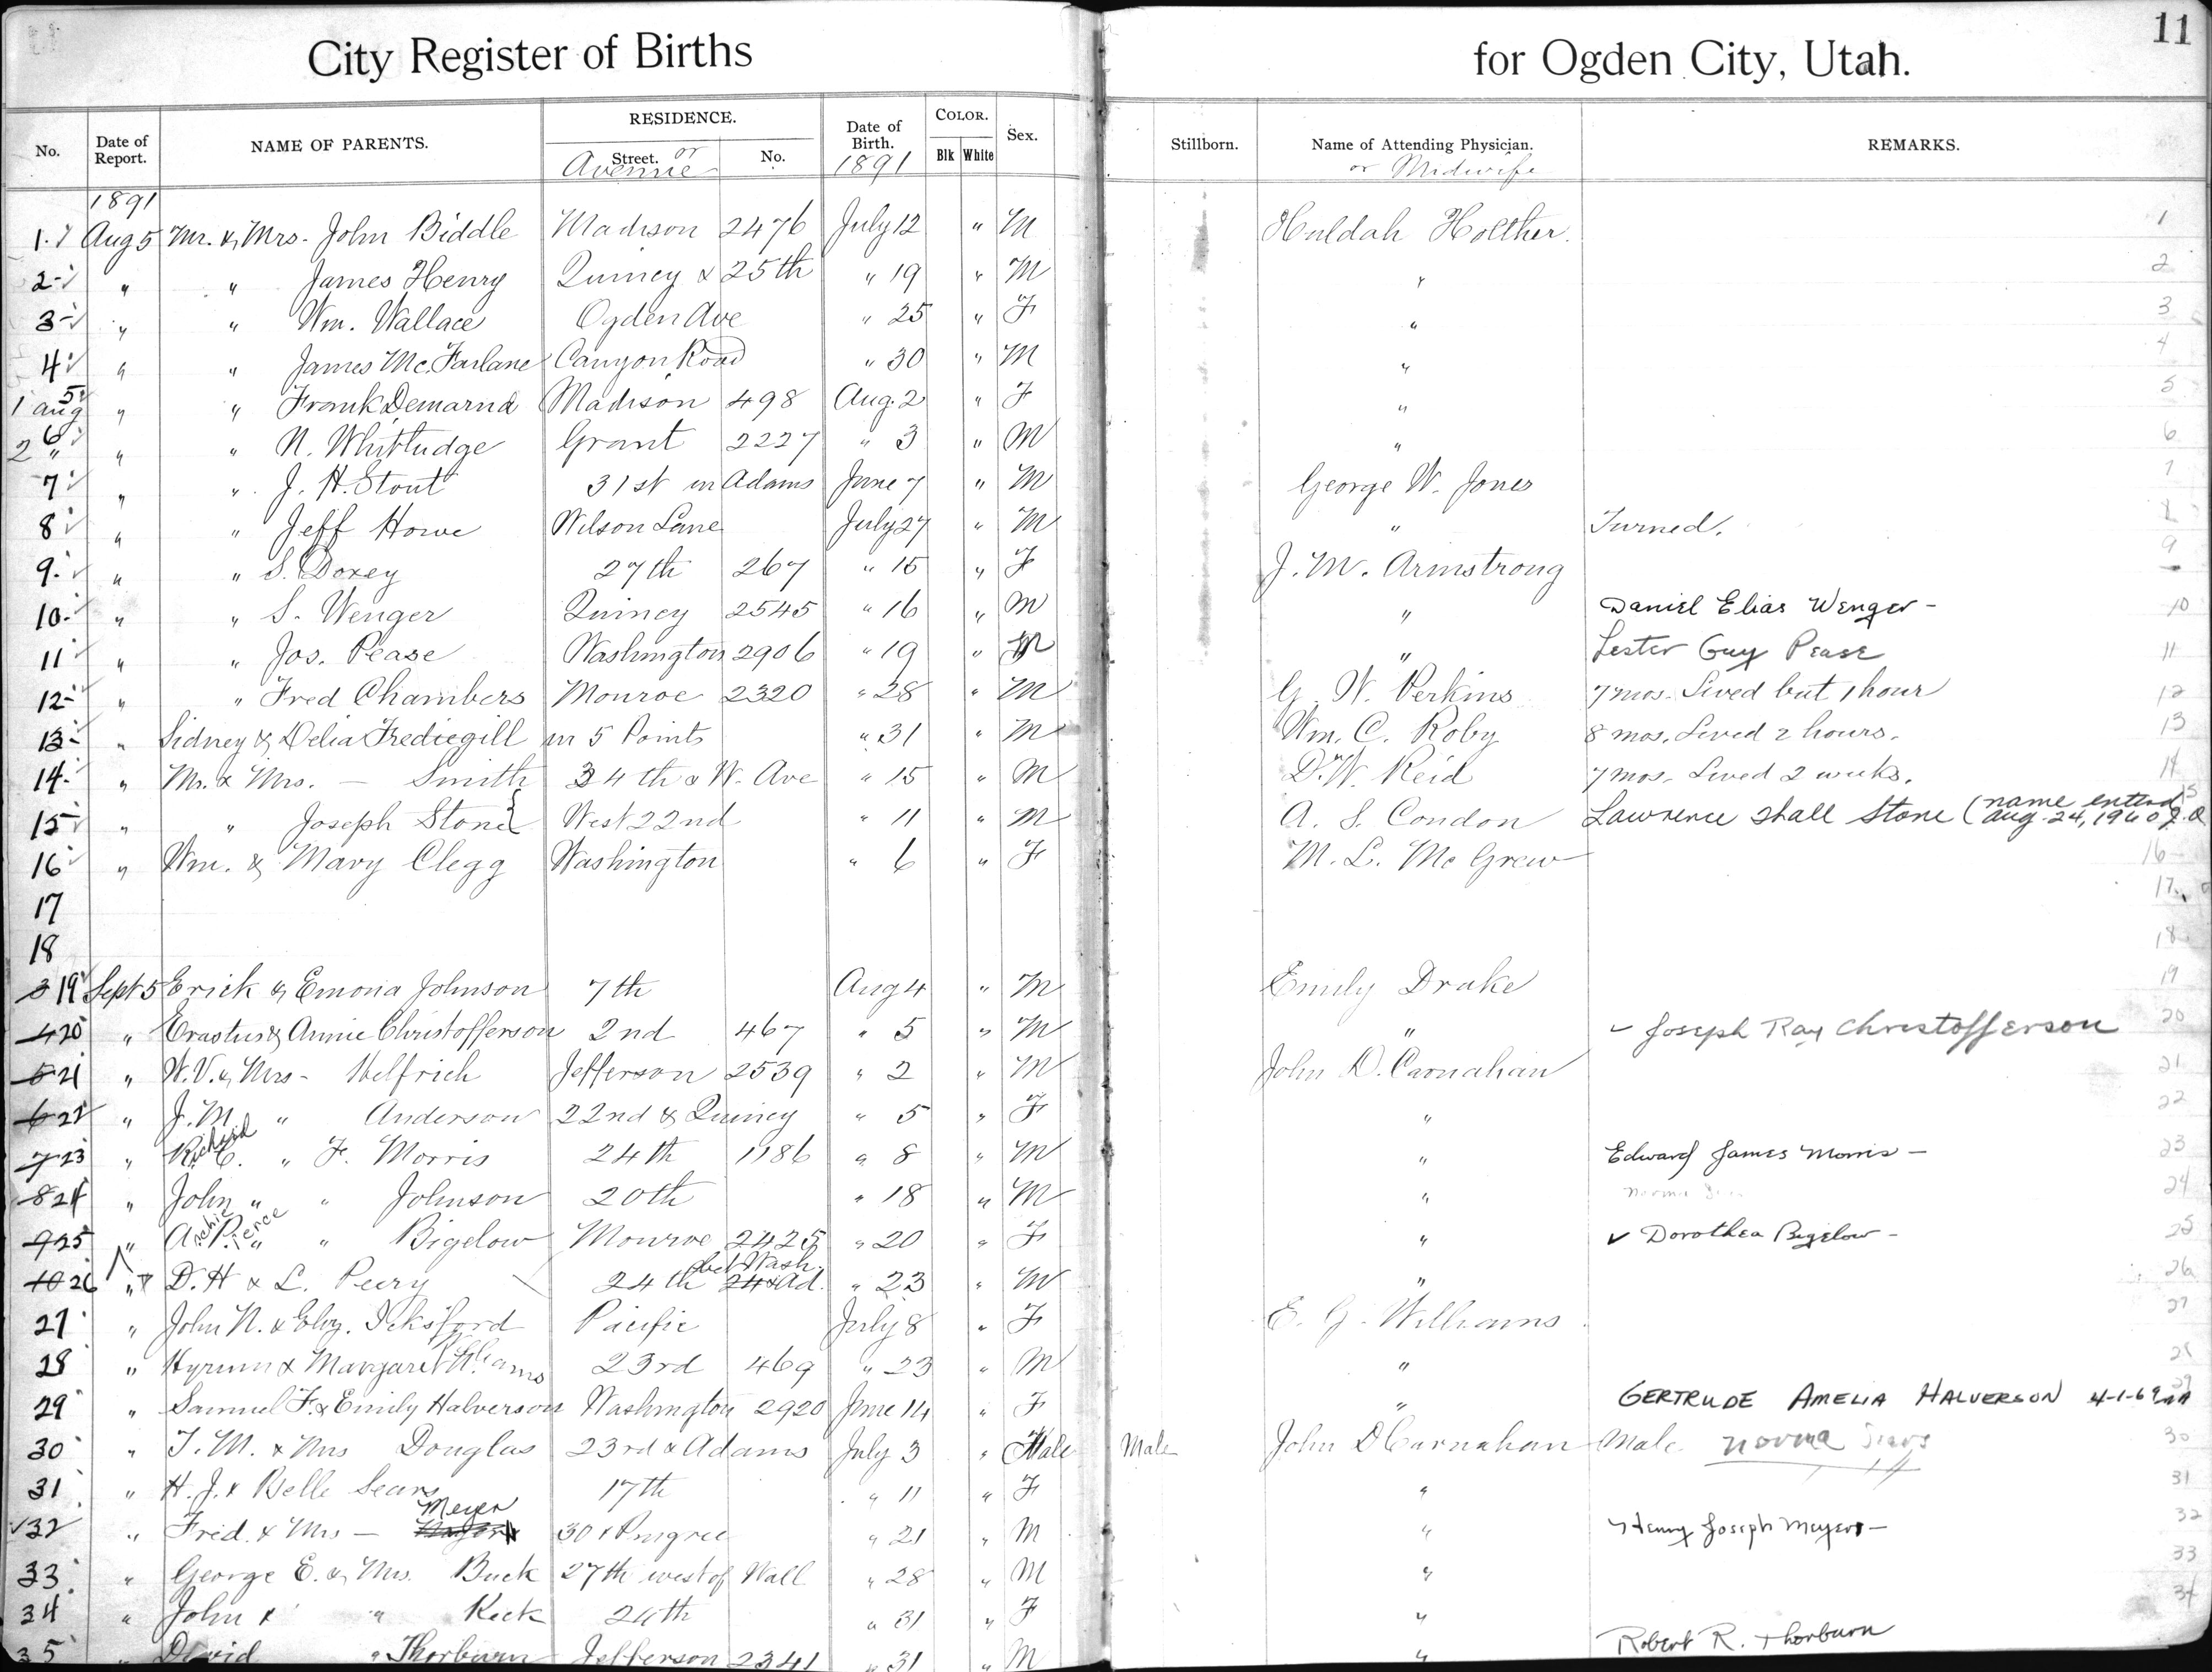 11
City Register of Births for Ogden City, Utah.
No. Date of Report. NAME OF PARENTS. RESIDENCE. Street. or Avenue No. Date of Birth. 1891 COLOR. Blk White Sex. Stillborn. Name of Attending Physician. or Midwife REMARKS.
1891
1. Aug 5 Mr. & Mrs. John Biddle Madison 2476 July 12 " M Huldah Holther. 1
2 " " James Henry Quincy & 25th " 19 " M " 2
3 " " Wm. Wallace Ogden Ave " 25 " F " 3
4 " " James Mc. Farlane Canyon Road " 30 " M " 4
5 1 aug " " Frank Demarna Madison 498 Aug. 2 " F " 5
6 2 " " " N. Whittudge Grant 2227 " 3 " M " 6
7 " " J. H. Stout 31st nr Adams June 7 " M George W. Jones 7
8 " " Jeff Howe Wilson Lane July 27 " M " Turned. 8
9. " " S. Doxey 27th 267 " 15 " F J. M. Armstrong 9
10. " " S. Wenger Quincy 2545 " 16 " M " Daniel Elias Wenger - 10
11 " " Jos. Pease Washington 2906 " 19 " M " Lester Guy Pease 11
12 " " Fred Chambers Monroe 2320 " 28 " M G. W. Perkins 7 mos. Lived but 1 hour 12
13 " Sidney & Delia Frediegill nr 5 Points " 31 " M Wm. C. Roby 8 mos. Lived 2 hours. 13
14. " Mr. & Mrs. — Smith 34th & W. Ave " 15 " M D. W. Reid 7 mos. Lived 2 weeks. 14
15 " " Joseph Stone West 22nd " 11 " M A. S. Condon Lawrence Shall Stone (name entered Aug. 24, 1940 15
16 " Wm. & Mary Clegg Washington " 6 " F M. L. Mc Grew 16
17 17
18 18
3 19 Sept 5 Erick & Emoria Johnson 7th Aug 4 " M Emily Drake 19
4 20 " Erastus & Annie Christofferson 2nd 467 " 5 " M " Joseph Ray Christofferson 20
5 21 " W. V. & Mrs - Helfrich Jefferson 2539 " 2 " M John D. Carnahan 21
6 22 " J. M. " Anderson 22nd & Quincy " 5 " F " 22
7 23 " Richard C. " F. Morris 24th 1186 " 8 " M " Edward James Morris - 23
8 24 " John " " Johnson 20th " 18 " M " 24
9 25 " Archie Pence " " Bigelow Monroe 2425 " 20 " F " ✓ Dorothea Bigelow - 25
10 26 " D. H & L. Peery 24th bet Wash. & Ad. " 23 " M " 26
27 " John N. & Eliz. Icksford Pacific July 8 " F E. G. Williams 27
28 " Hyrum & Margaret Williams 23rd 469 " 23 " M " 28
29 " Samuel F. & Emily Halverson Washington 2920 June 14 " F " GERTRUDE AMELIA HALVERSON 4-1-69 29
30 " T. M. & Mrs Douglas 23rd & Adams July 3 " Male Male John D Carnahan Male norma Sears 30
31 " H. J. & Belle Sears 17th " 11 " F " 31
32 " Fred. & Mrs — Meyer 30 & Pingree " 21 " M " Henry Joseph Meyers - 32
33 " George E. & Mrs. Buck 27th west of Wall " 28 " M " 33
34 " John & " Keck 24th " 31 " F " 34
35 " David " Thorburn Jefferson 2341 " 31 " M " Robert R. Thorburn